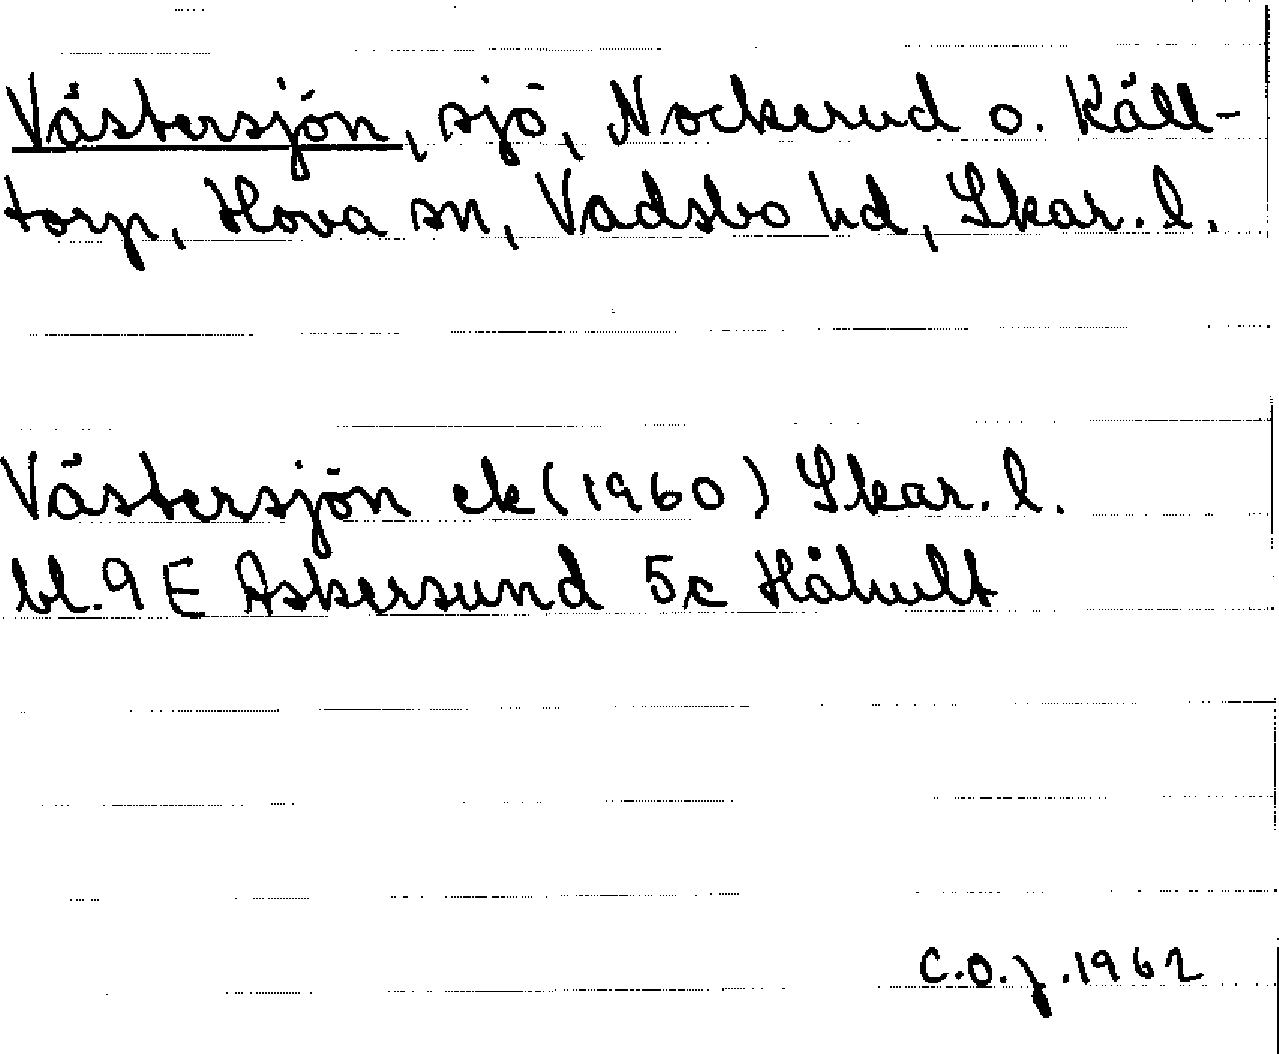 Västersjön, sjö, Nockerud o. Käll-
torp, Hova sn, Vadsbo hd, Skar. l.
Västersjön ek (1960) Skar. l.
bl. 9 E Askersund 5c Håhult
C.O.J. 1962